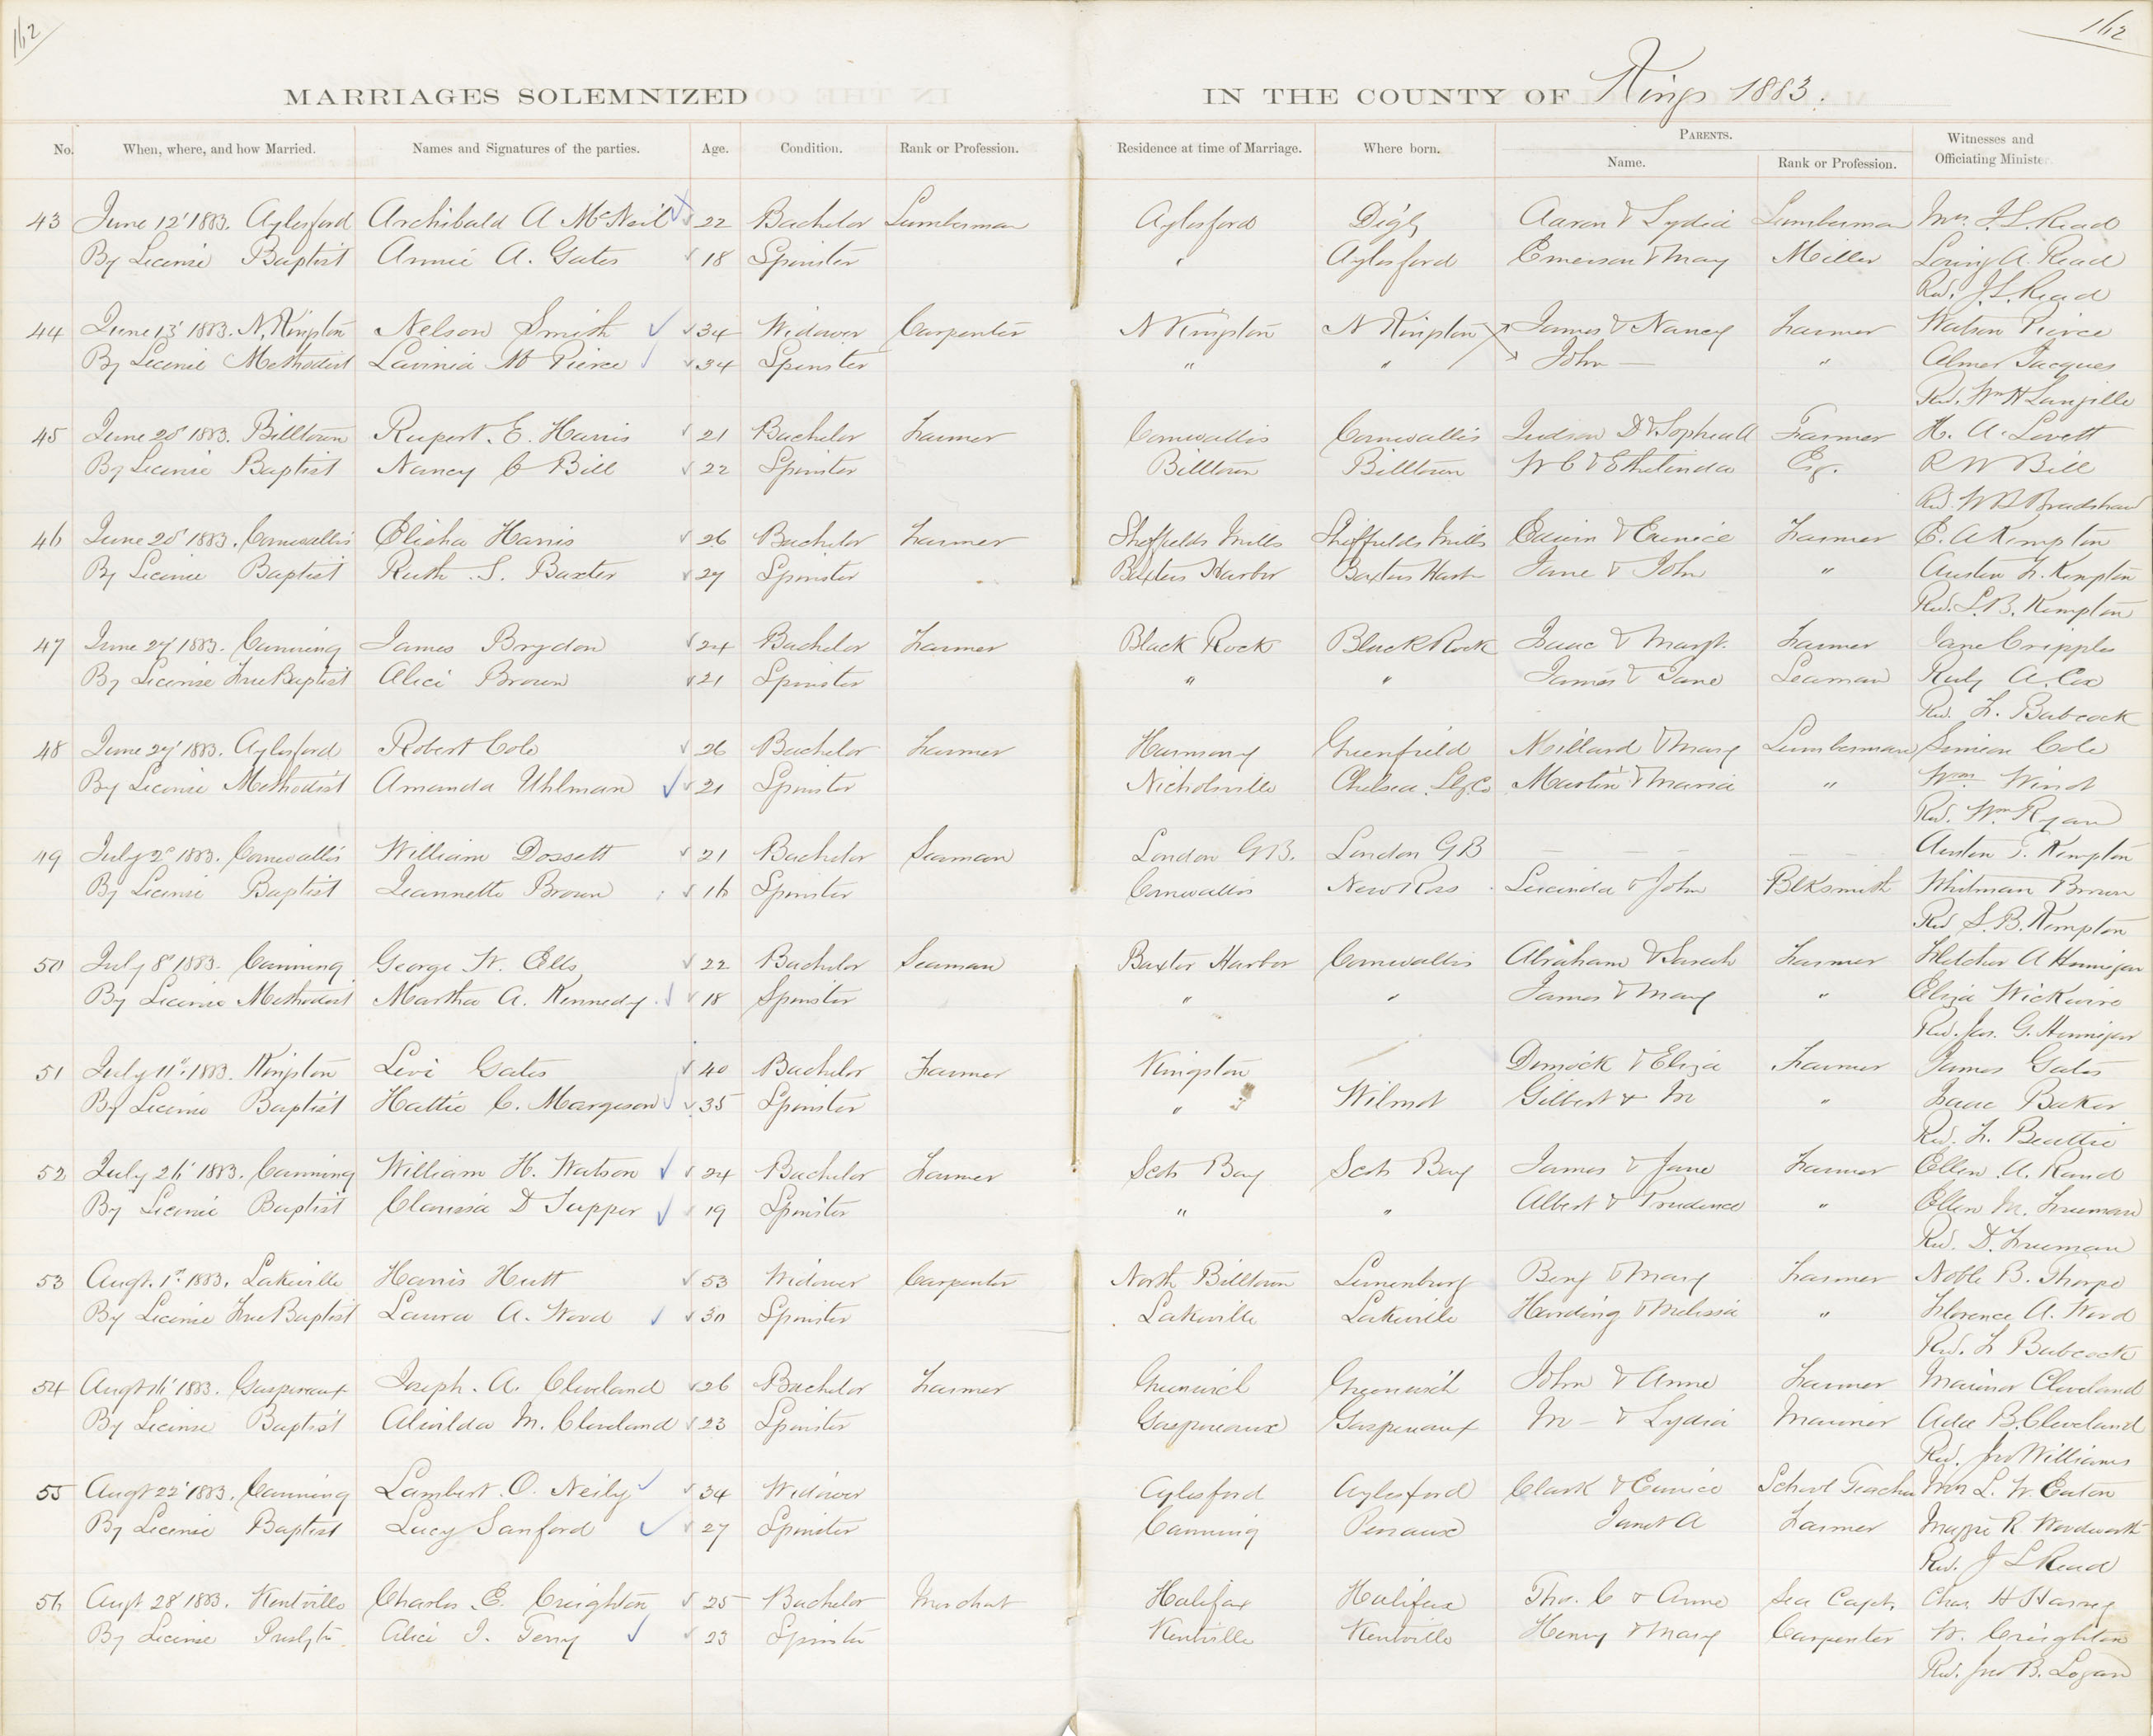 162
162
MARRIAGES SOLEMNIZED IN THE COUNTY OF Kings 1883.
No. When, where, and how Married. Names and Signatures of the parties. Age. Condition. Rank or Profession. Residence at time of Marriage. Where born. PARENTS. Name. Rank or Profession. Witnesses and Officiating Minister.
43 June 12' 1883. Aylesford Archibald A McNeil 22 Bachelor Lumberman Aylesford Digby Aaron & Lydia Lumberman Mrs. J. L. Read
By License Baptist Annie A. Gates 18 Spinster " Aylesford Emerson & Mary Miller Loring A. Read
Rev. J. L. Read
44 June 13' 1883. N. Kingston Nelson Smith 34 Widower Carpenter N Kingston N Kingston James & Nancy Farmer Watson Pierce
By License Methodist Lavinia M Pierce 34 Spinster " " John — " Almer Jacques
Rev. Wm H Langille
45 June 20' 1883. Billtown Rupert. E. Harris 21 Bachelor Farmer Cornwallis Cornwallis Judson D & Sophia A Farmer H. A. Lovett
By License Baptist Nancy C Bill 22 Spinster Billtown Billtown W C & Ethelinda Esq. R W Bill
Rev. W B Bradshaw
46 June 20' 1883. Cornwallis Elisha Harris 26 Bachelor Farmer Sheffields Mills Sheffields Mills Edwin & Eunice Farmer E. A Kempton
By License Baptist Ruth. S. Baxter 27 Spinster Baxters Harbor Baxters Harb Jane & John " Austen L. Kempton
Rev. S. B. Kempton
47 June 27' 1883. Canning James Brydon 24 Bachelor Farmer Black Rock Black Rock Isaac & Margt. Farmer Jane Cripples
By License Free Baptist Alice Brown 21 Spinster " " James & Jane Seaman Ruby A. Cox
Rev. F. Babcock
48 June 27' 1883. Aylesford Robert Cole 26 Bachelor Farmer Harmony Greenfield Millard & Mary Lumberman Simeon Cole
By License Methodist Amanda Uhlman 21 Spinster Nicholsville Chelsea. Lbg. Co Martin & Maria " Wm Wind
Rev. Wm Ryan
49 July 2d 1883. Cornwallis William Dossett 21 Bachelor Seaman London G.B. London GB — — — — — Austen T. Kempton
By License Baptist Jeannette Brown 16 Spinster Cornwallis New Ross Lucinda & John Blksmith Whitman Brown
Rev S. B. Kempton
50 July 8' 1883. Canning George W. Ells 22 Bachelor Seaman Baxter Harbor Cornwallis Abraham & Sarah Farmer Fletcher A Hennigar
By License Methodist Martha A. Kennedy. 18 Spinster " " James & Mary " Eliza Wickwire
Rev. Jas. G. Hennigar
51 July 11' 1883. Kingston Levi Gates 40 Bachelor Farmer Kingston Dimock & Eliza Farmer James Gates
By License Baptist Hattie C. Margeson 35 Spinster " Wilmot Gilbert & M " Isaac Baker
Rev. F. Beattie
52 July 26' 1883. Canning William H. Watson 24 Bachelor Farmer Scots Bay Scots Bay James & Jane Farmer Ellen. A. Rand
By License Baptist Clarissa D Tupper 19 Spinster " " Albert & Prudence " Ellen M. Freeman
Rev. D. Freeman
53 Augt. 1st. 1883. Lakeville Harris Hutt 53 Widower Carpenter North Billtown Lunenburg Benj & Mary Farmer Noble B. Thorpe
By License Free Baptist Laura A. Wood 30 Spinster Lakeville Lakeville Harding & Melissa " Florence A. Wood
Rev. F Babcock
54 Augt 16' 1883. Gaspereaux Joseph. A. Cleveland 26 Bachelor Farmer Greenwich Greenwich John & Anne Farmer Mariner Cleveland
By License Baptist Alwilda M. Cleveland 23 Spinster Gaspereaux Gaspereaux M — & Lydia Mariner Ada B. Cleveland
Rev. Jno Williams
55 Augt 22' 1883. Canning Lambert. O. Neily 34 Widower Aylesford Aylesford Clark & Eunice School Teacher Mrs L. W. Eaton
By License Baptist Lucy Sanford 27 Spinster Canning Pereaux Janet A Farmer Maggie R Woodworth
Rev. J L Read
56 Augt 28' 1883. Kentville Charles. E. Creighton 25 Bachelor Merchat Halifax Halifax Tho. C & Anne Sea Capt. Chas. H Harvey
By License Presbytn Alice J. Terry 23 Spinster Kentville Kentville Henry & Mary Carpenter W. Creighton
Rev. Jno B. Logan